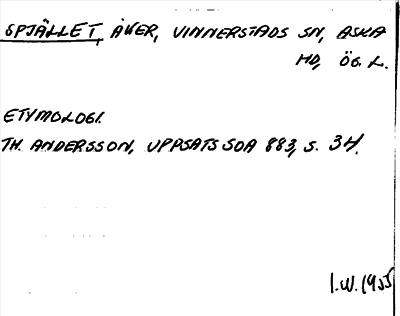 SPJÄLLET, ÅKER, VINNERSTADS SN, ASKA
HD, ÖG. L.
ETYMOLOGI.
TH. ANDERSSON, UPPSATS SOA 883, S. 34.
I.W. 1955